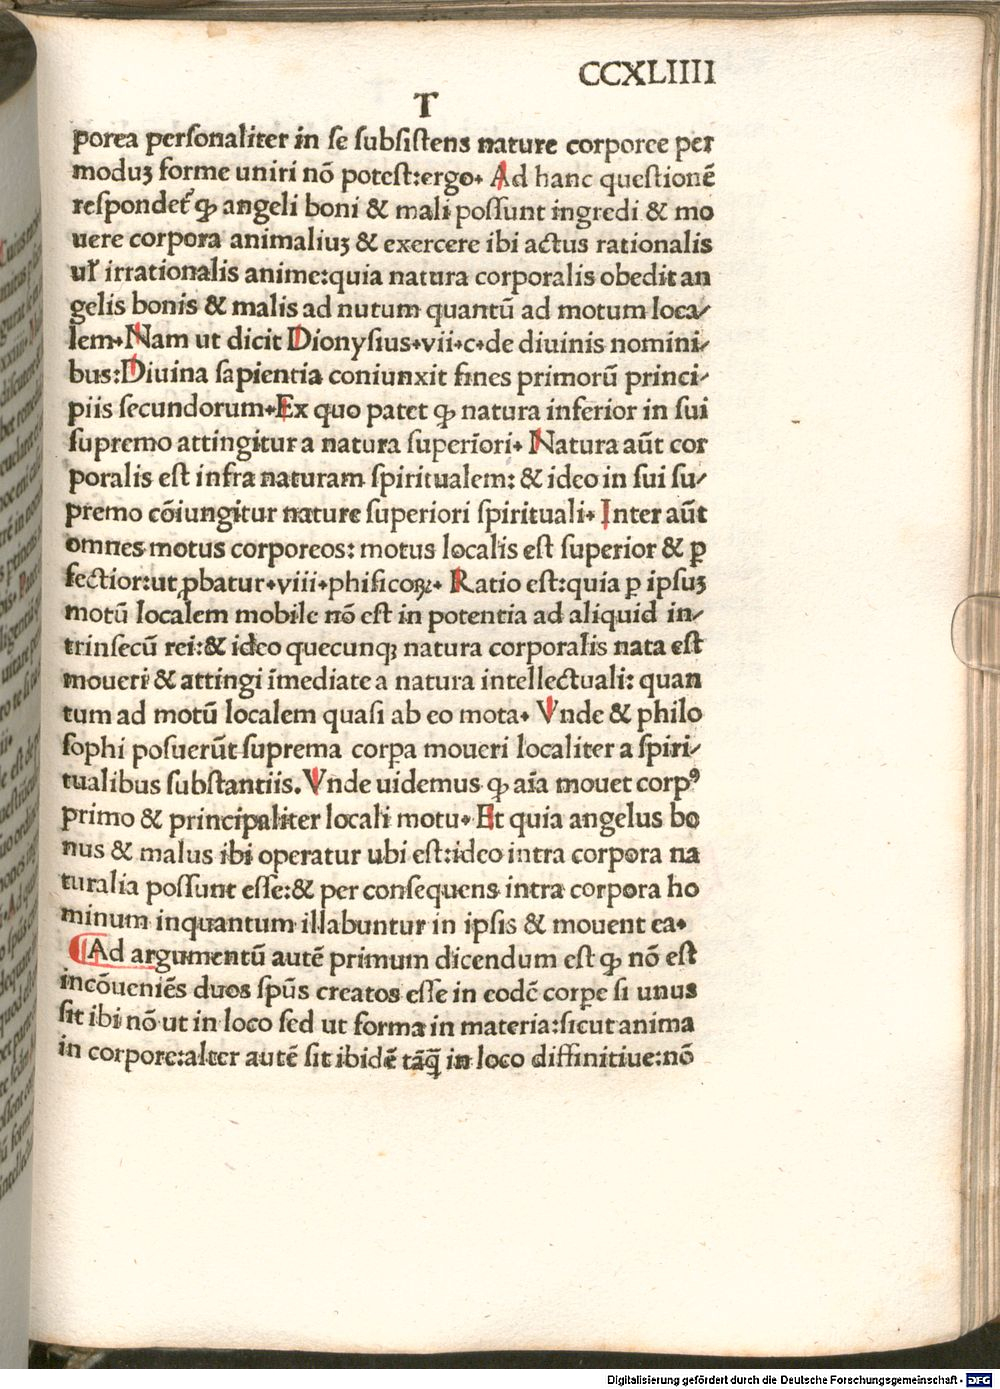 CCXLIIII
T
porea personaliter in se subsistens nature corporee per
moduꝫ forme uniri nō potest:ergo. Ad hanc questionē
respondet᷑ ꝙ angeli boni & mali possunt ingredi & mo
uere corpora animaliuꝫ & exercere ibi actus rationalis
uł irrationalis anime:quia natura corporalis obedit an
gelis bonis & malis ad nutum quantū ad motum loca/
lem.Nam ut dicit Dionysius.vii.c.de diuinis nomini/
bus:Diuina sapientia coniunxit fines primorū princi/
piis secundorum.Ex quo patet ꝙ natura inferior in sui
supremo attingitur a natura superiori. Natura aūt cor
poralis est infra naturam spiritualem: & ideo in sui su/
premo cōiungitur nature superiori spirituali. Inter aūt
omnes motus corporeos: motus localis est superior & ꝑ
fectior:ut ꝓbatur.viii.phisicoꝝ. Ratio est:quia ꝑ ipsuꝫ
motū localem mobile nō est in potentia ad aliquid in/
trinsecū rei:& ideo quecunqꝫ natura corporalis nata est
moueri & attingi īmediate a natura intellectuali: quan
tum ad motū localem quasi ab eo mota. Vnde & philo
sophi posuerūt suprema corꝑa moueri localiter a spiri/
tualibus substantiis. Vnde uidemus ꝙ aīa mouet corpꝰ
primo & principaliter locali motu. Et quia angelus bo
nus & malus ibi operatur ubi est:ideo intra corpora na
turalia possunt esse:& per consequens intra corpora ho
minum inquantum illabuntur in ipsis & mouent ea.
¶Ad argumentū autē primum dicendum est ꝙ nō est
incōueniēs duos spūs creatos esse in eodē corꝑe si unus
sit ibi nō ut in loco sed ut forma in materia:sicut anima
in corpore:alter autē sit ibidē tāꝗ̄ in loco diffinitiue:nō
Digitalisierung gefördert durch die Deutsche Forschungsgemeinschaft - DFG